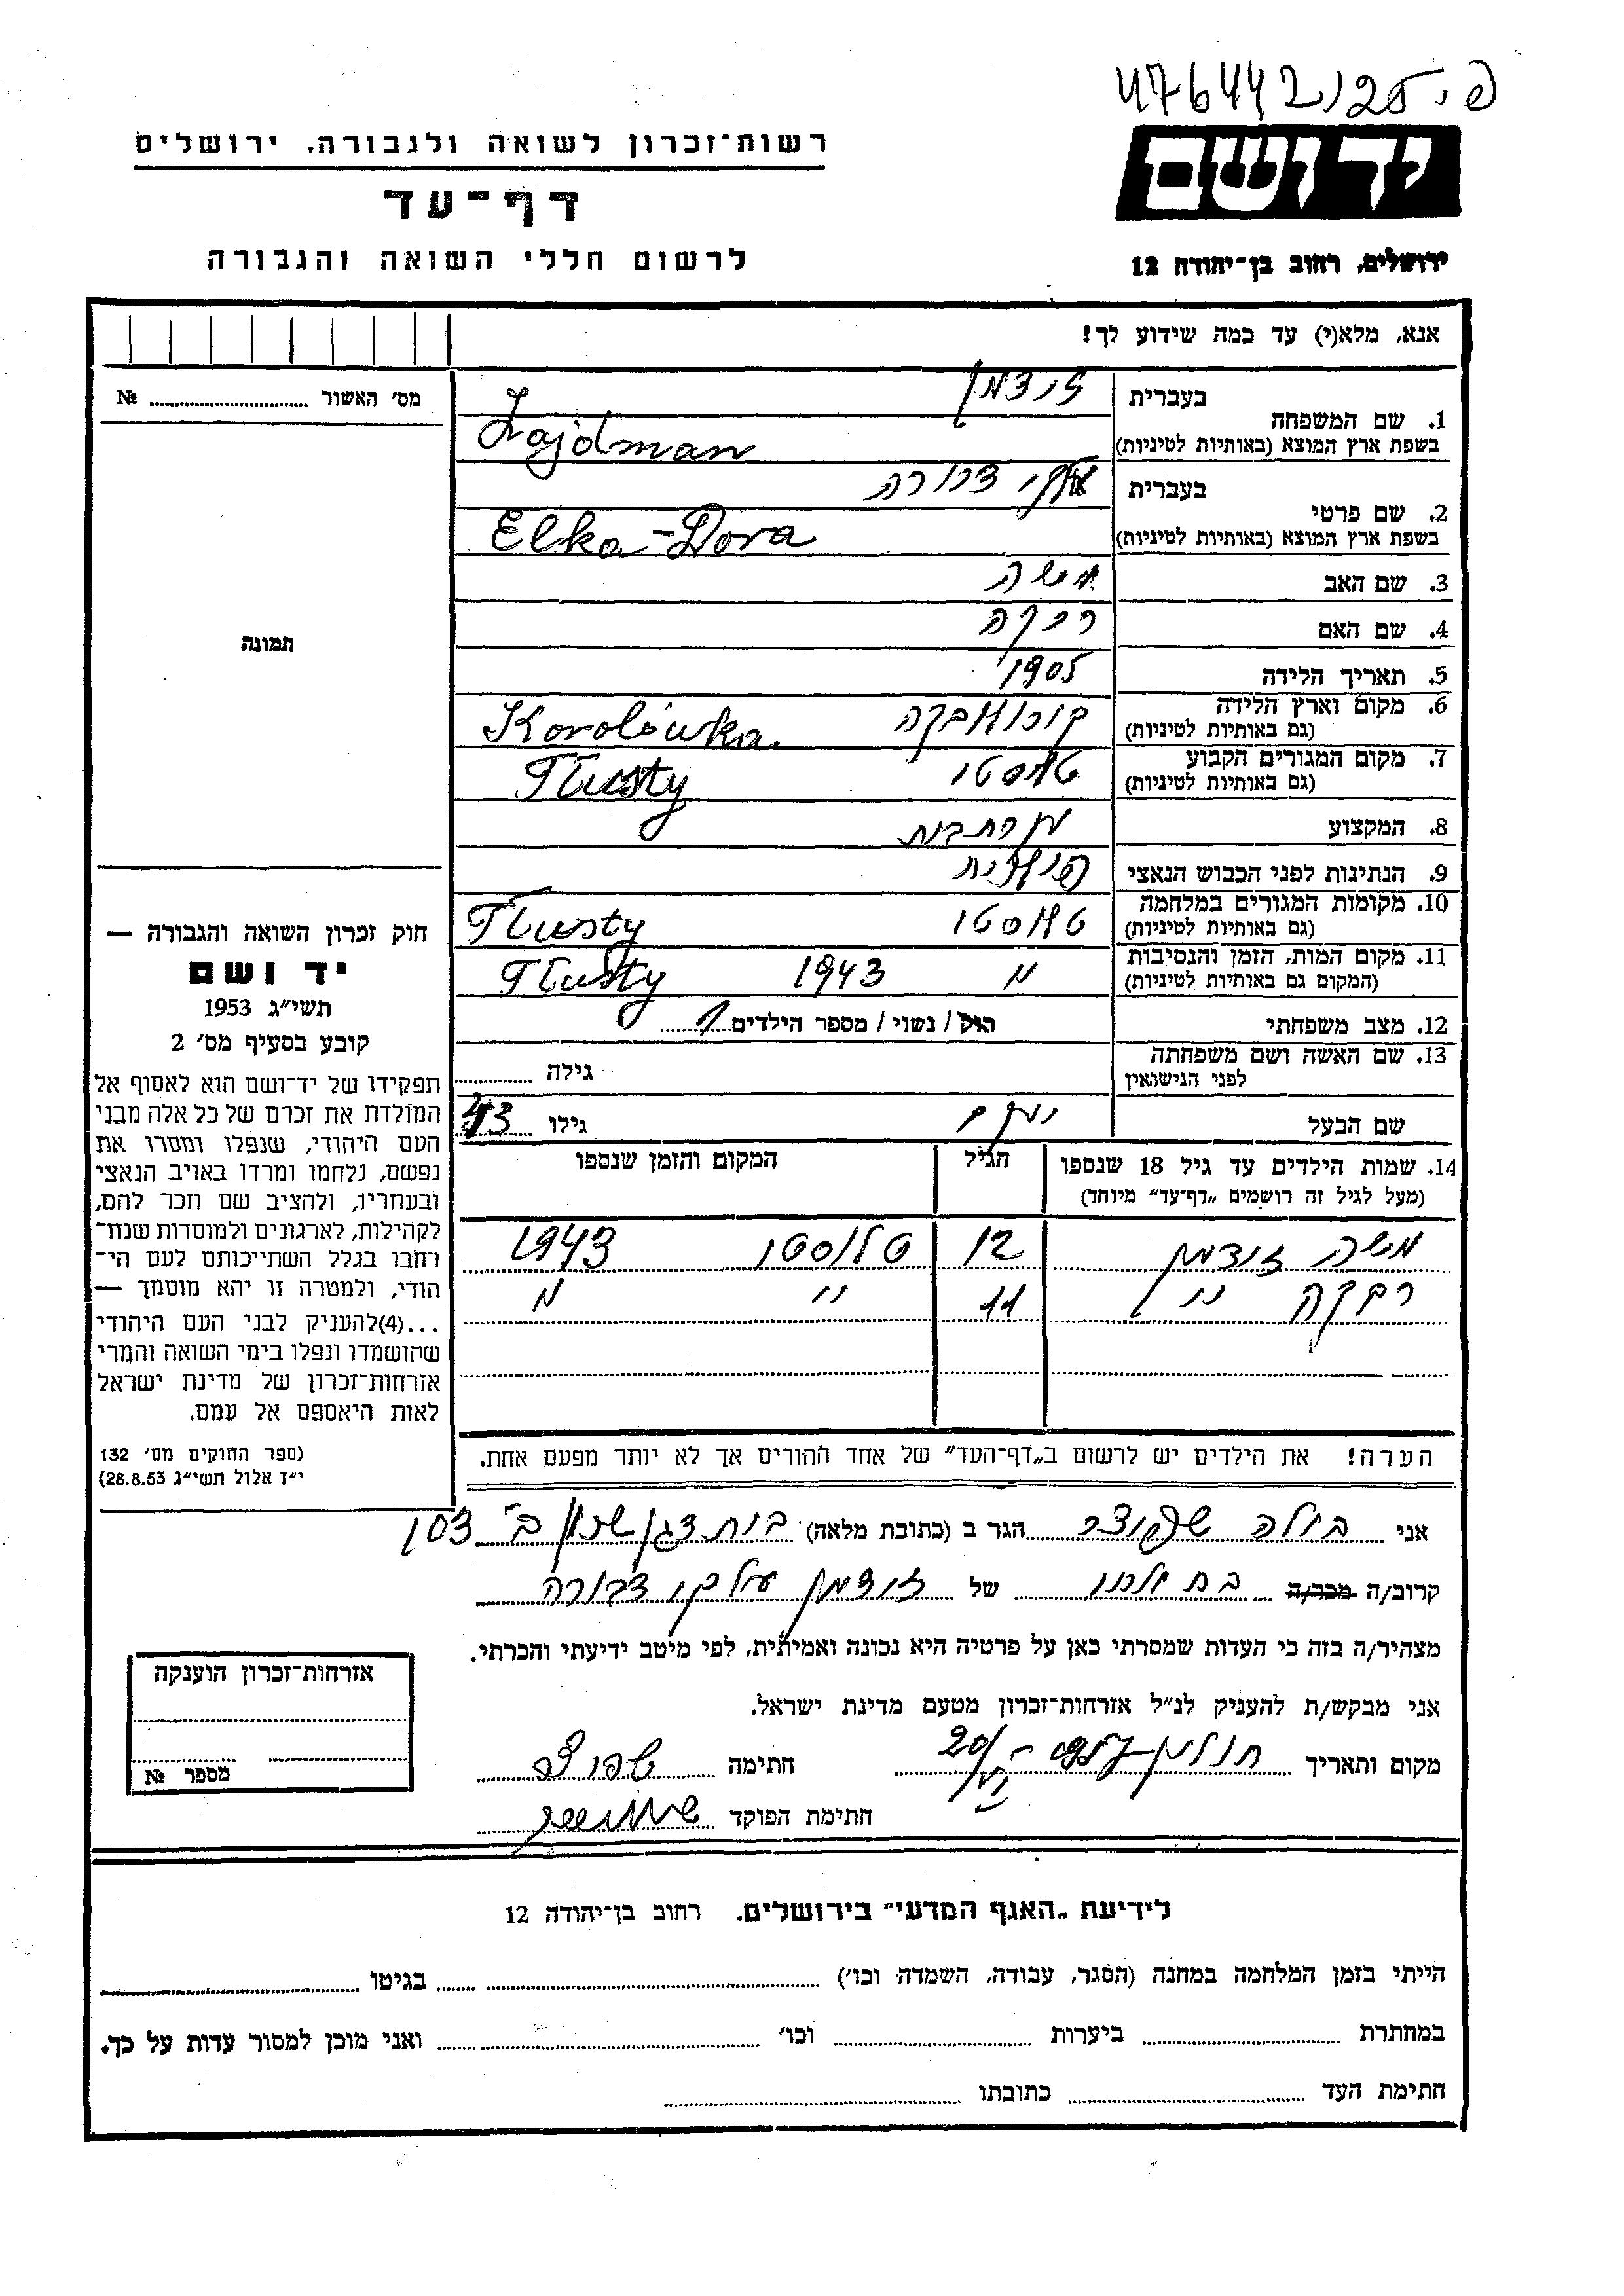 476442/25 .י.פ
רשות־זכרון לשואה ולגבורה. ירושלים
דף־עד
לרשום חללי השואה והגבורה
יד ושם
ירושלים, רחוב בן־יהודה 12
אנא, מלא(י) עד כמה שידוע לך!
מס׳ האשור № 
תמונה
חוק זכרון השואה והגבורה —
יד ושם
תשי״ג 1953
קובע בסעיף מס׳ 2
תפקידו של יד־ושם הוא לאסוף אל
המולדת את זכרם של כל אלה מבני
העם היהודי, שנפלו ומסרו את
נפשם, נלחמו ומרדו באויב הנאצי
ובעוזריו, ולהציב שם וזכר להם,
לקהילות, לארגונים ולמוסדות שנח־
רחבו בגלל השתייכותם לעם הי־
הודי, ולמטרה זו יהא מוסמך —
...(4)להעניק לבני העם היהודי
שהושמדו ונפלו בימי השואה והמרי
אזרחות־זכרון של מדינת ישראל
לאות היאספם אל עמם.
(ספר החוקים מס׳ 132
י״ז אלול תשי״ג 28.8.53)
1. שם המשפחה בעברית זידמן
בשפת ארץ המוצא (באותיות לטיניות) Zajdman
2. שם פרטי בעברית דבורה
בשפת ארץ המוצא (באותיות לטיניות) Elka-Dora
3. שם האב משה
4. שם האם רבקה
5. תאריך הלידה 1905
6. מקום וארץ הלידה (גם באותיות לטיניות) Korolówka
7. מקום המגורים הקבוע (גם באותיות לטיניות) טלוסטי Tłusty
8. המקצוע עקרת בית
9. הנתינות לפני הכבוש הנאצי פולנית
10. מקומות המגורים במלחמה (גם באותיות לטיניות) טלוסטי Tłusty
11. מקום המות, הזמן והנסיבות (המקום גם באותיות לטיניות) 1943 Tłusty
12. מצב משפחתי רוק/ נשוי/ מספר הילדים
13. שם האשה ושם משפחתה לפני הנישואין גילה
שם הבעל גילו 43
14. שמות הילדים עד גיל 18 שנספו (מעל לגיל זה רושמים „דף־עד״ מיוחד) הגיל המקום והזמן שנספו
משה זידמן 12 טלוסטי 1943
רבקה ״ 11 ״ ״
הערה! את הילדים יש לרשום ב„דף־העד״ של אחד ההורים אך לא יותר מפעם אחת.
אני ביילה הגר ב (כתובת מלאה) בית דגן שכון ב׳ 103
קרוב/ה מכר/ה של זידמן עלקי דבורה
מצהיר/ה בזה כי העדות שמסרתי כאן על פרטיה היא נכונה ואמיתית, לפי מיטב ידיעתי והכרתי.
אני מבקש/ת להעניק לנ״ל אזרחות־זכרון מטעם מדינת ישראל.
מקום ותאריך חולון חתימה
חתימת הפוקד
אזרחות־זכרון הוענקה
מספר №
לידיעת „האגף המדעי״ בירושלים. רחוב בן־יהודה 12
הייתי בזמן המלחמה במחנה (הסגר, עבודה, השמדה וכו׳) בגיטו
במחתרת ביערות וכו׳ ואני מוכן למסור עדות על כך.
חתימת העד כתובתו